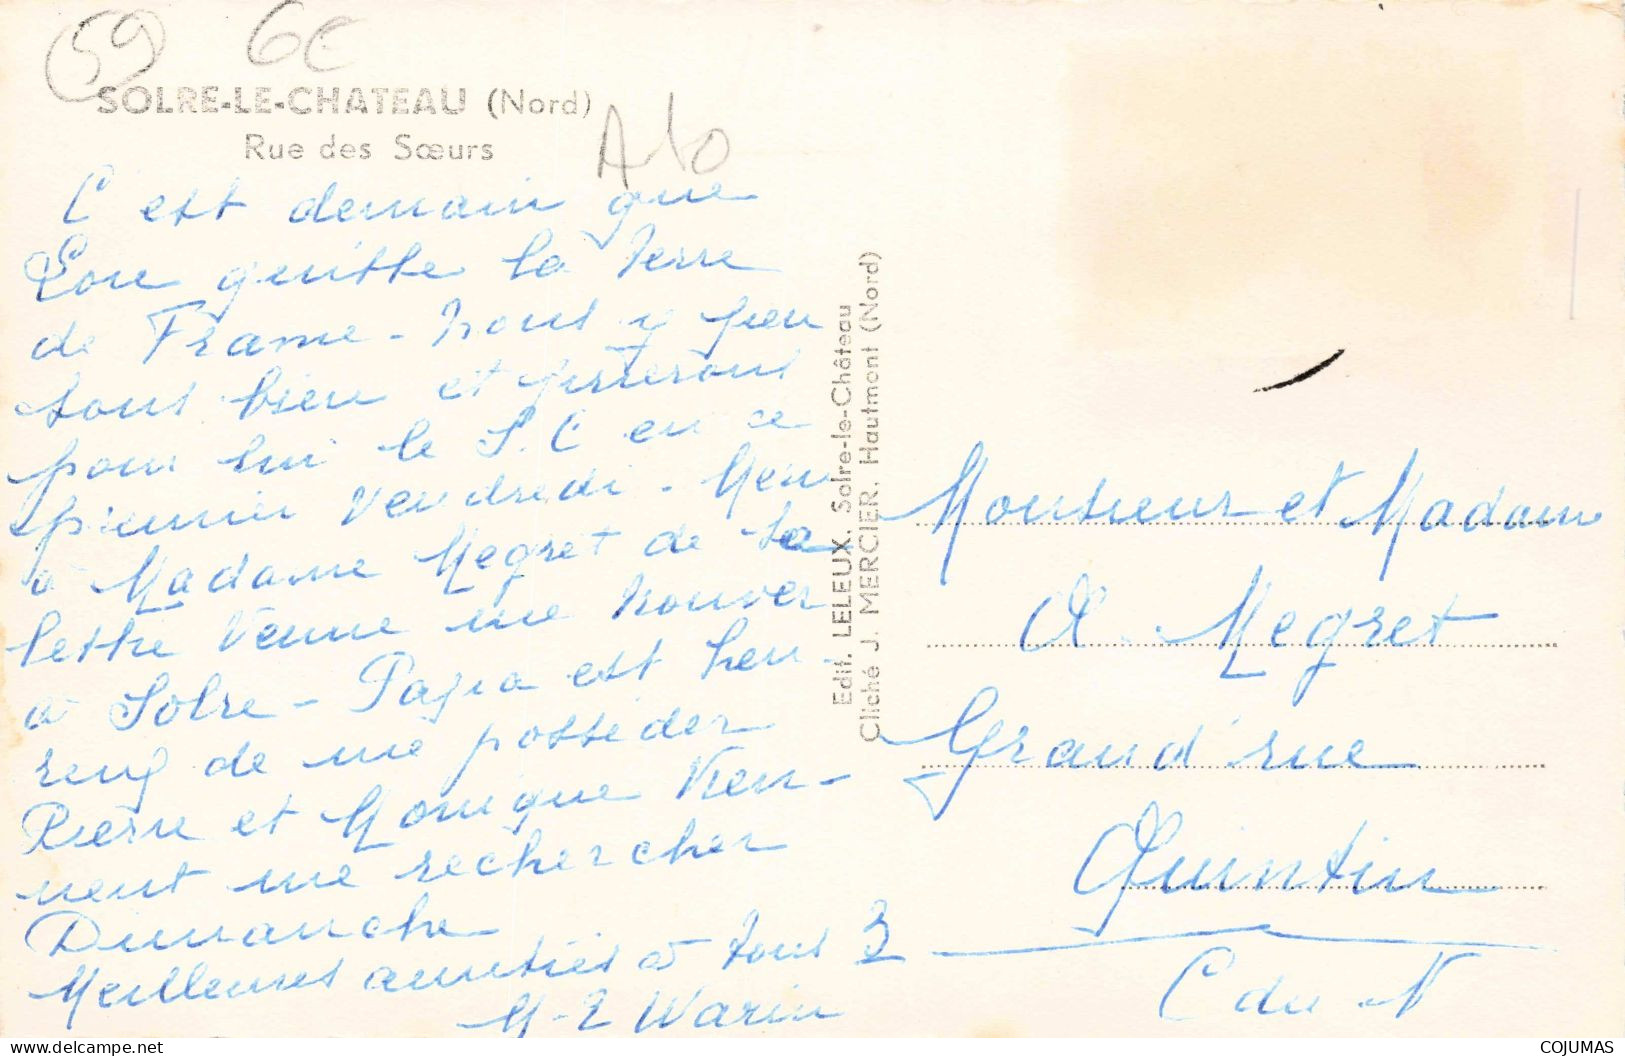 59 6€
SOLRE-LE-CHATEAU (Nord)
Rue des Sœurs
A10
C'est demain que
Lou quitte la terre
de France - nous y pen
sons bien et prierons
pour lui le S. C en ce
premier Vendredi - Merci
à Madame Megret de sa
lettre venue me trouver
à Solre - Papa est heu-
reux de me posséder
Pierre et Monique vien-
nent me rechercher
Dimanche
Meilleures amitiés à tous 3
M-L Warin
Edit. LELEUX, Solre-le-Château
Cliché J. MERCIER, Hautmont (Nord)
Monsieur et Madame
A. Megret
Grand'rue
Quintin
C du N
COJUMAS